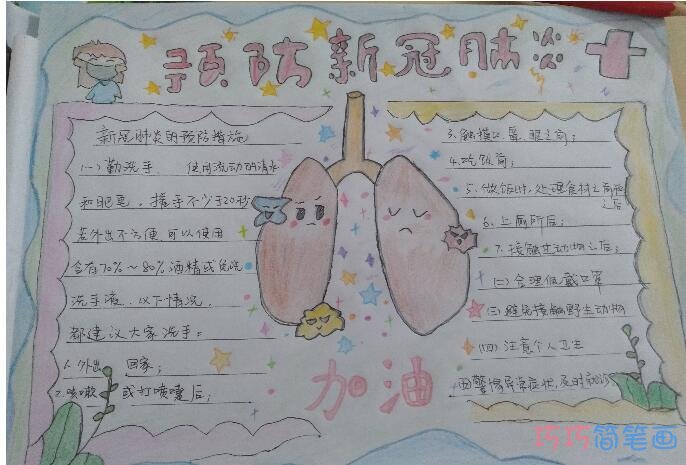 预防新冠肺炎
新冠肺炎的预防措施
(一)勤洗手. 使用流动的清水
和肥皂,搓手不少于20秒
若外出不方便可以使用
含有70%~80%酒精或免洗
洗手液,以下情况,
都建议大家洗手:
1.外出 回家;
2.咳嗽 或打喷嚏后;
3.触摸口、鼻、眼之前;
4.吃饭前;
5.做饭时,处理食材之前和
之后
6.上厕所后;
7.接触生动物之后;
(二)合理佩戴口罩
(三)避免接触野生动物
(四)注意个人卫生
警惕异常症状,及时就诊
加油
巧巧简笔画